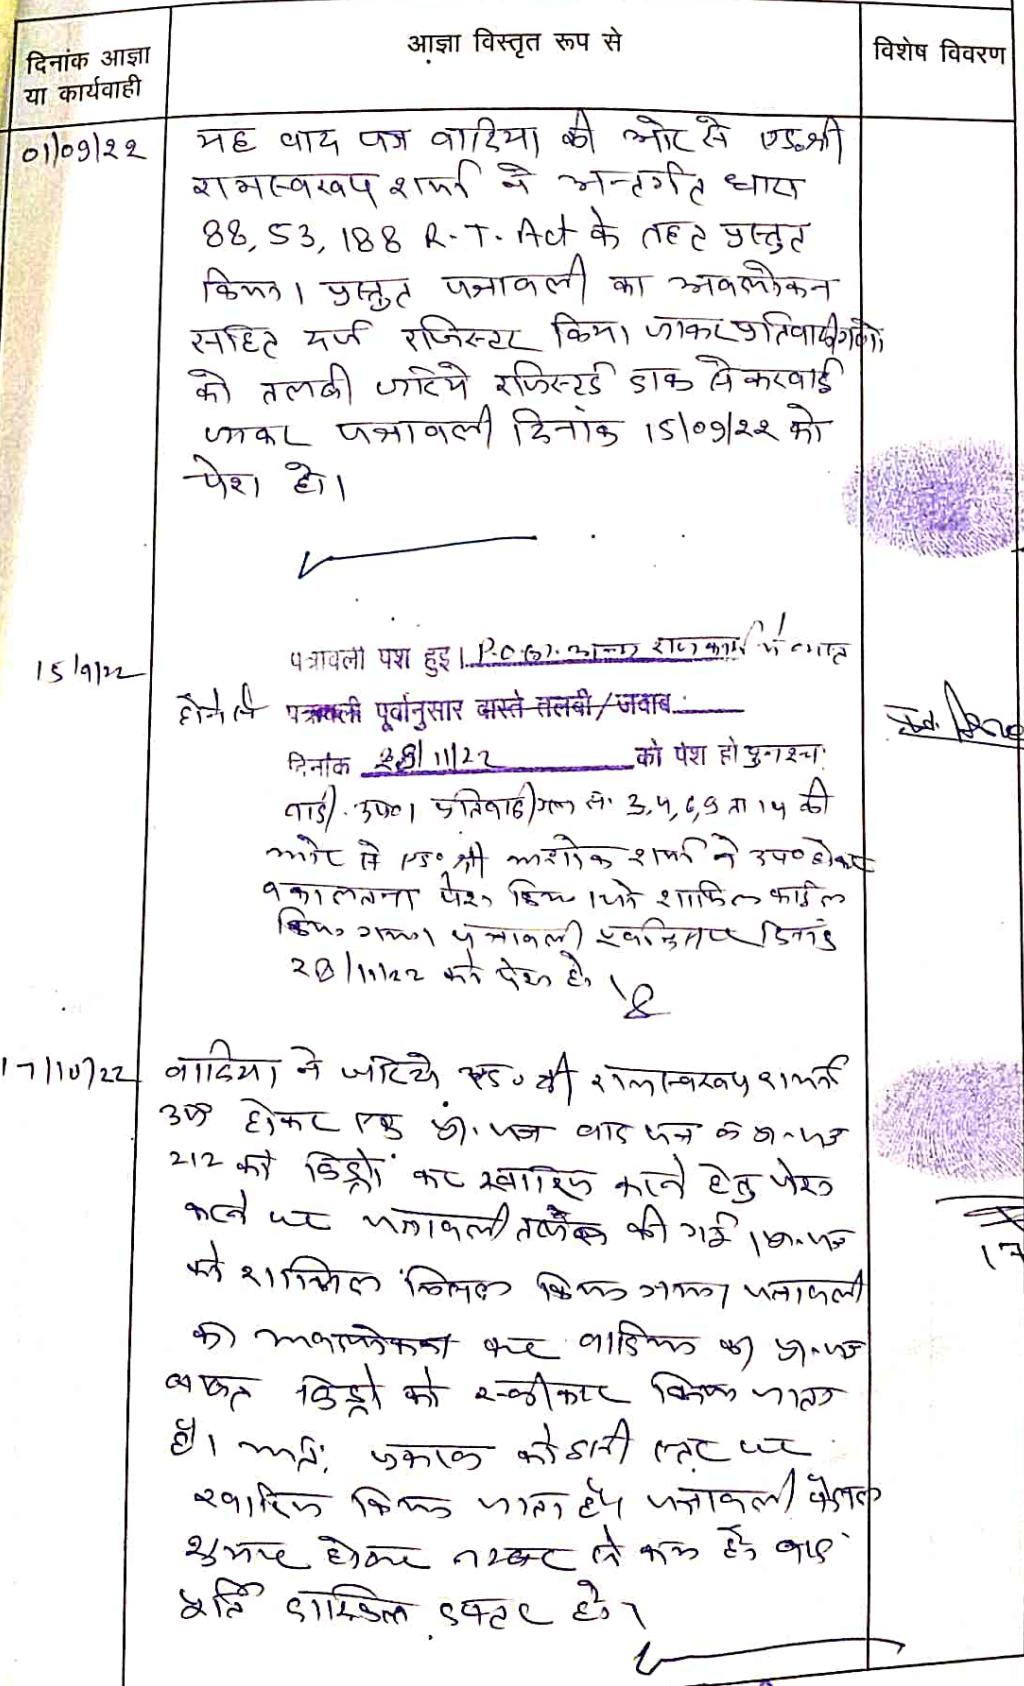 दिनांक आज्ञा
या कार्यवाही
आज्ञा विस्तृत रूप से
विशेष विवरण
01/09/22
यह वाद पत्र वादिया की ओर से एड. श्री
रामस्वरूप शर्मा ने अन्तर्गत धारा
88, 53, 188 R.T. Act के तहत प्रस्तुत
किया। प्रस्तुत पत्रावली का अवलोकन
सहित दर्ज रजिस्टर किया जाकर प्रतिवादीगणों
को तलबी जरिये रजिस्टर्ड डाक से करवाई
जाकर पत्रावली दिनांक 15/09/22 को
पेश हो।
15/9/22
पत्रावली पेश हुई। P.O. अन्य राज कार्य में व्यस्त
होने से पत्रावली पूर्वानुसार वास्ते तलबी/जवाब
दिनांक 28/11/22 को पेश हो पुनश्च:
वादी. उप०। प्रतिवादीगण सं. 3,4,6,9 ता 14 की
ओर से एड० श्री अशोक शर्मा ने उप० होकर
वकालतनामा पेश किया जो शामिल फाईल
किया गया। पत्रावली दिनांक
28/11/22 को पेश हो।
17/10/22
वादिया ने जरिये एड० श्री रामस्वरूप शर्मा
उप० होकर एक प्रा. पत्र वाद पत्र व प्रा. पत्र
212 को विड्रो कर खारिज करने हेतु पेश
करने पर पत्रावली तलब की गई। प्रा. पत्र
को शामिल मिसल किया गया। पत्रावली
का अवलोकन कर वादिया का प्रा. पत्र
बाबत विड्रो को स्वीकार किया जाता
है। अतः प्रकरण को इसी स्तर पर
खारिज किया जाता है। पत्रावली फैसल
शुमार होकर नम्बर से कम हो बाद
पूर्ति दाखिल दफ्तर हो।
17